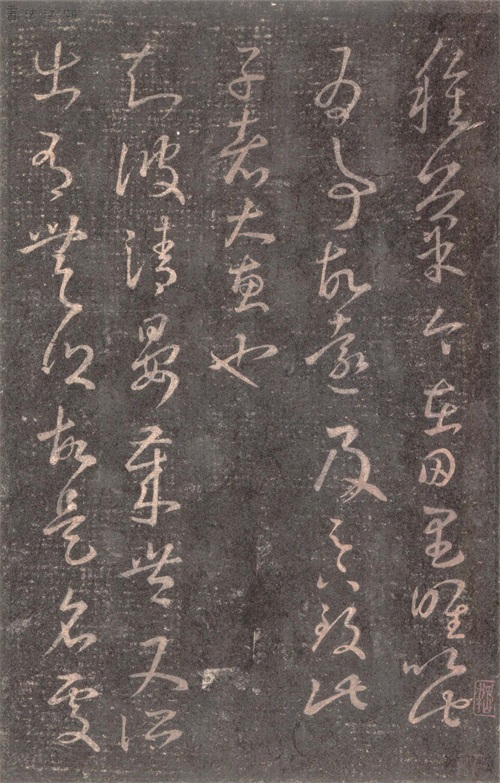 種菓今在田里唯以此
為事故遠及足下致此
子者大惠也
知彼清晏歲豐又所
出有無乏故是名處